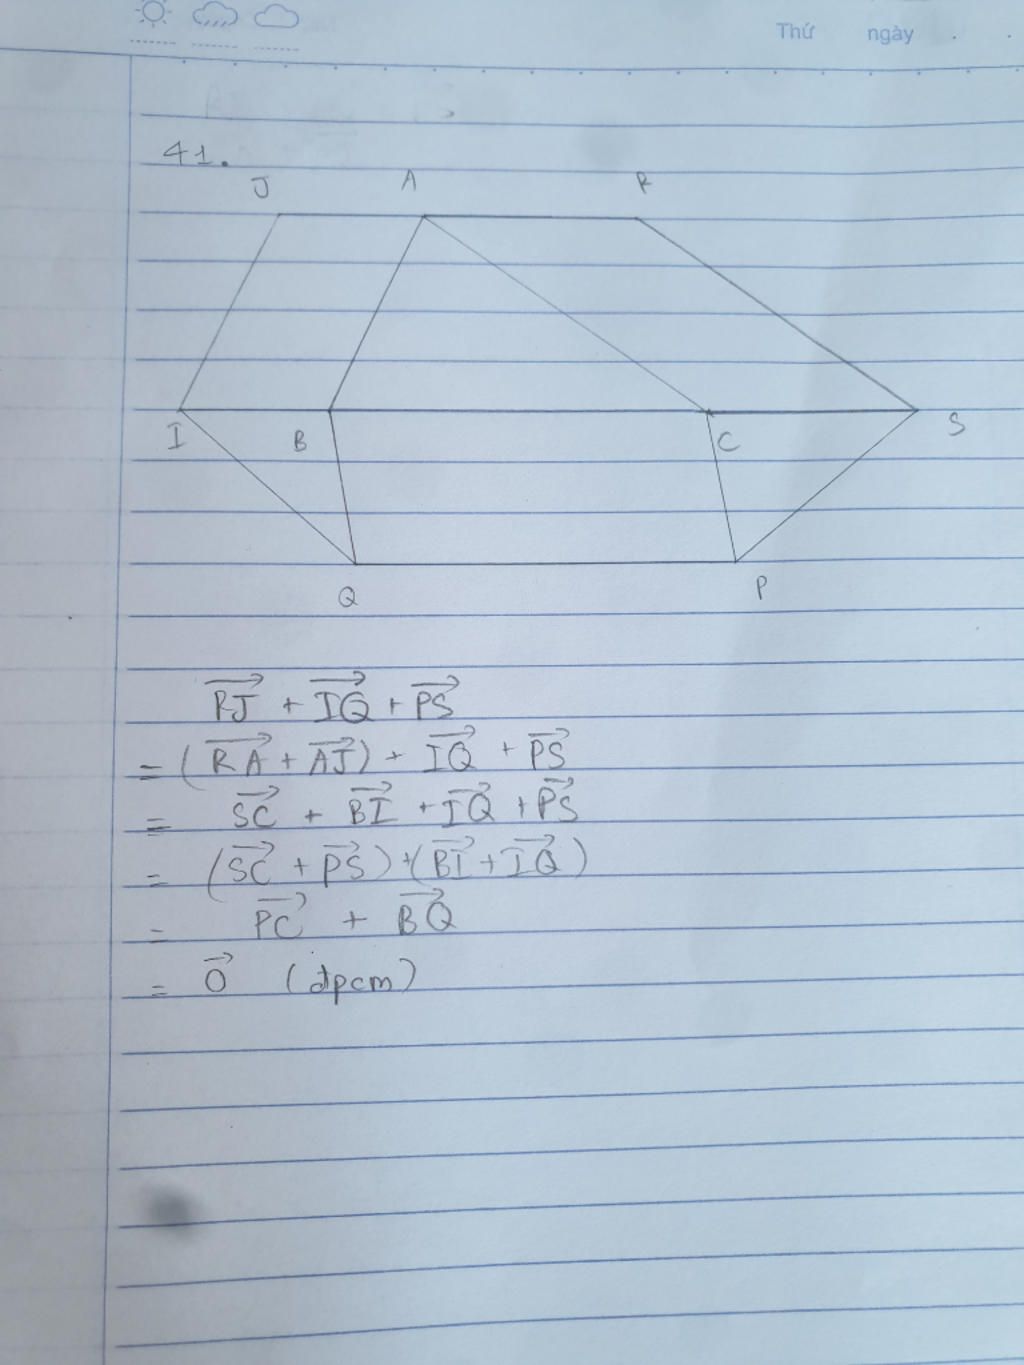 Thứ ngày
41.
J A R
I B C S
Q P
$\overrightarrow{RJ} + \overrightarrow{IQ} + \overrightarrow{PS}$
$= (\overrightarrow{RA} + \overrightarrow{AJ}) + \overrightarrow{IQ} + \overrightarrow{PS}$
$= \overrightarrow{SC} + \overrightarrow{BI} + \overrightarrow{IQ} + \overrightarrow{PS}$
$= (\overrightarrow{SC} + \overrightarrow{PS}) + (\overrightarrow{BI} + \overrightarrow{IQ})$
$= \overrightarrow{PC} + \overrightarrow{BQ}$
$= \overrightarrow{0}$ (đpcm)